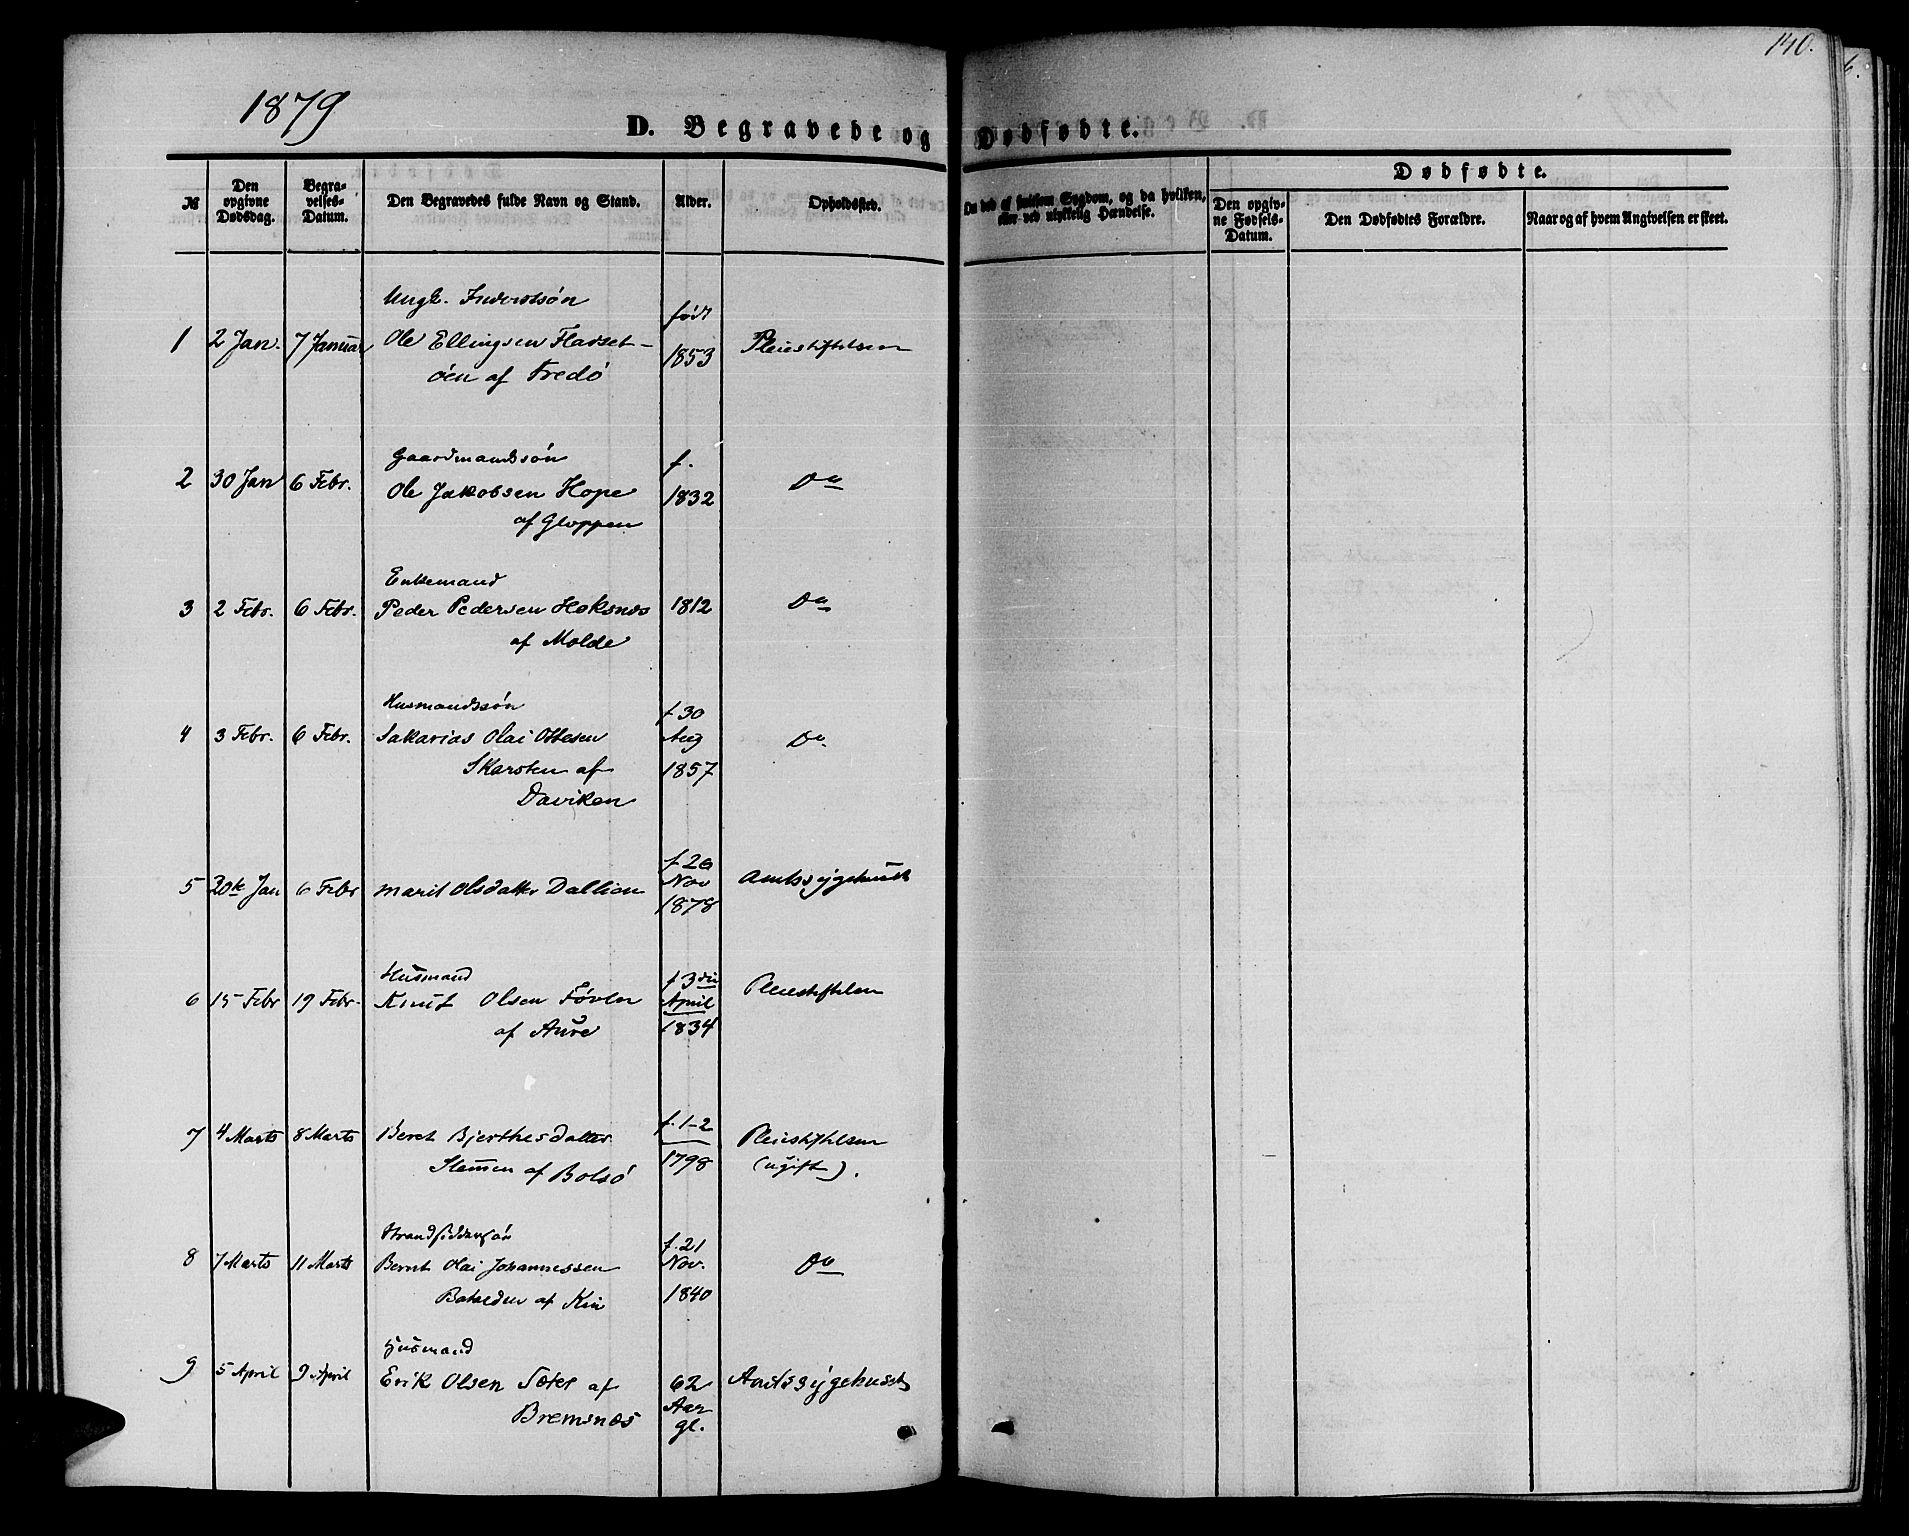 140.
1879
D. Begravede og Dødfødte.
№
Den opgivne Dødsdag.
Begra-velses-Datum.
Den Begravedes fulde Navn og Stand.
Alder.
Opholdssted.
Om død af smitsom Sygdom, og da hvilken, eller ved ulykkelig Hændelse.
Dødfødte.
Den opgiv-ne Fødsels-Datum.
Den Dødfødtes Forældre.
Naar og af hvem Angivelsen er skeet.
Ungk. Inderstsøn
1 2 Jan. 7 Januar Ole Ellingsen Flatset- født 1853 Pleiestiftelsen
öen af Fredö
Gaardmandssøn
2 30 Jan 6 Febr. Ole Jakobsen Hope f. 1832 Do
af Gloppen
Enkemand
3 2 Febr. 6 Febr. Peder Pedersen Hoksnæs 1812 Do
af Molde
Husmandssøn
4 3 Febr. 6 Febr. Sakarias Olai Ottesen f 30 Aug 1857 Do
Skarsten af
Daviken
5 30te Jan 6 Febr Marit Olsdatter Dallien f 26 Nov 1878 Amtssygehuset
Husmand
6 15 Febr 19 Febr. Knut Olsen f 3die April 1834 Pleiestiftelsen
af Aure
7 4 Marts 8 Marts Beret Bjerthesdatter f. 1-2 1798 Pleiestiftelsen
af Bolsö (ugift).
Strandsiddersøn
8 7 Marts 11 Marts Bernt Olai Johannessen f. 21 Nov. 1840 Do
Batalden af Kin
Husmand
9 5 April 9 April Erik Olsen Sæter af 62 Aar gl. Amtssygehuset
Bremsnæs